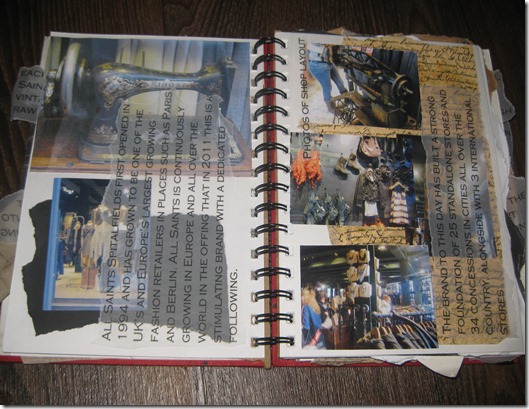 EACH
SAIN
VINT
RAW
ALL SAINTS SPITALFIELDS FIRST OPENED IN
1994 AND HAS GROWN TO BE ONE OF THE
UK'S AND EUROPE'S LARGEST GROWING
FASHION RETAILERS IN PLACES SUCH AS PARIS
AND BERLIN. ALL SAINTS IS CONTINUOUSLY
GROWING IN EUROPE AND ALL OVER THE
WORLD IN THE OFFING THAT IN 2011 THIS IS A
STIMULATING BRAND WITH A DEDICATED
FOLLOWING.
PHOTOS OF SHOP LAYOUT
THE BRAND TO THIS DAY HAS BUILT A STRONG
FOUNDATION OF 25 STANDALONE STORES AND
34 CONCESSIONS IN CITIES ALL OVER THE
COUNTRY, ALONGSIDE WITH 3 INTERNATIONAL
STORES